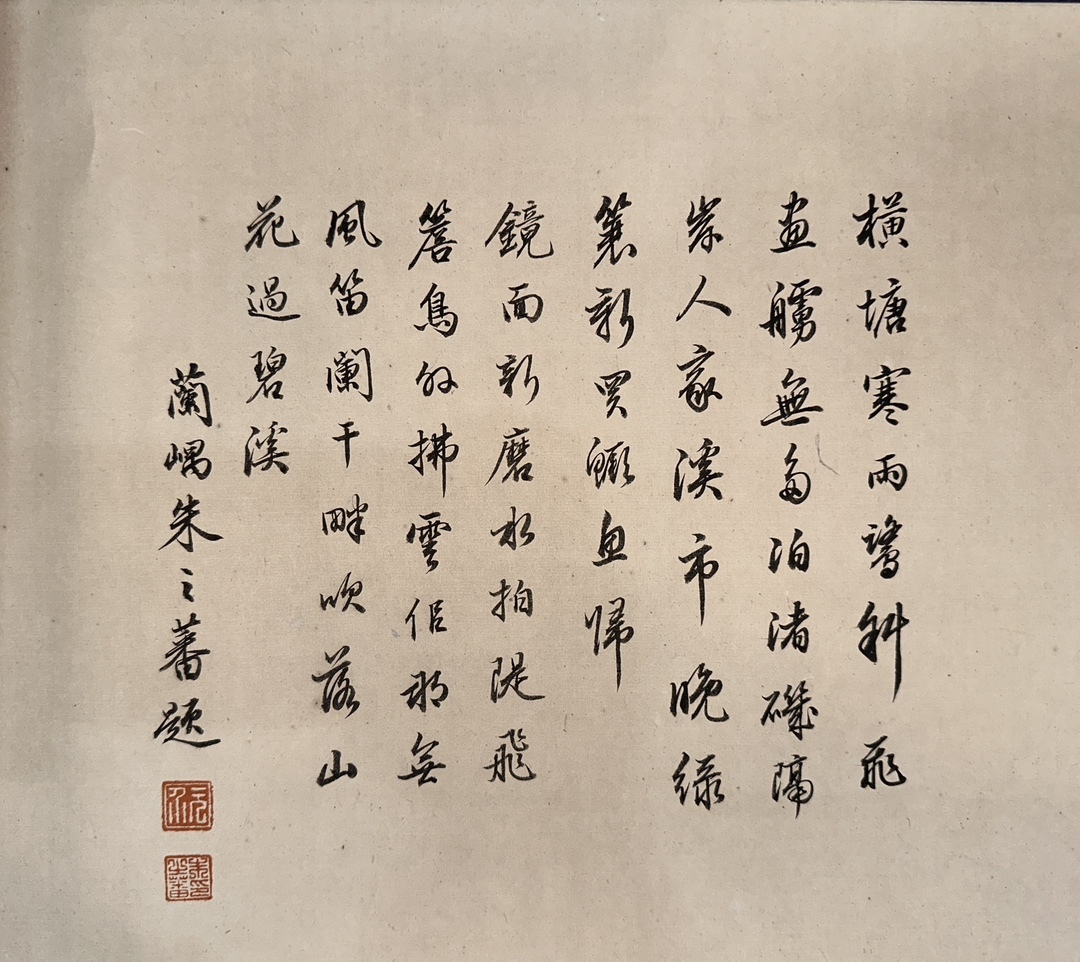 横塘寒雨鷺斜飛
畫艣無多泊渚磯隔
岸人家溪市晚綠
簑新買鱖魚歸
鏡面新磨水拍隄飛
簷鳥外拂雲低那無
風笛闌干畔吹落山
花過碧溪
蘭嵎朱之蕃題
朱之蕃印